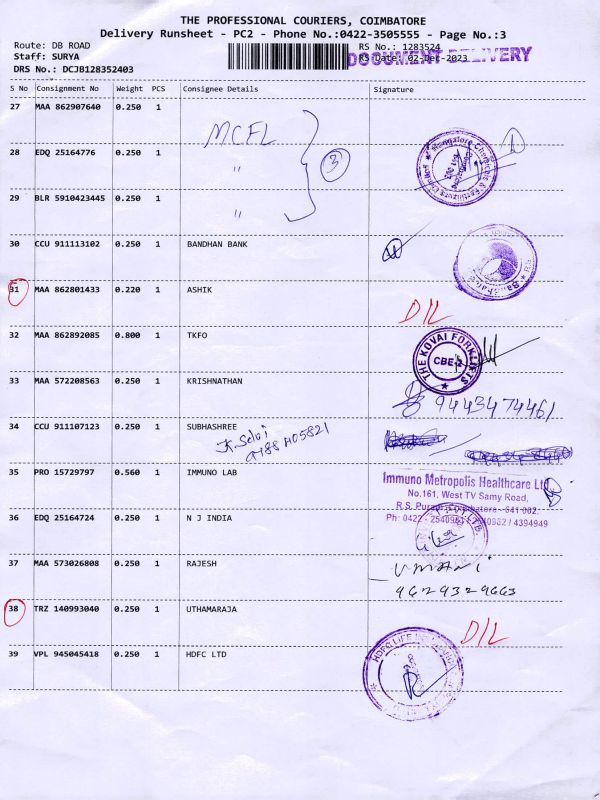 THE PROFESSIONAL COURIERS, COIMBATORE
Delivery Runsheet - PC2 - Phone No.:0422-3505555 - Page No.:3
Route: DB ROAD
RS No.: 1283524
Staff: SURYA
RS Date: 02-Dec-2023
DOCUMENT DELIVERY
DRS No.: DCJB128352403
S No Consignment No Weight PCS Consignee Details Signature
27 MAA 862907640 0.250 1
MCFL
28 EDQ 25164776 0.250 1 " 3
Mangalore Chemicals & Fertilizers Limited
29 BLR 5910423445 0.250 1
"
30 CCU 911113102 0.250 1 BANDHAN BANK
31 MAA 862801433 0.220 1 ASHIK
D/L
32 MAA 862892085 0.800 1 TKFO
THE KOVAI FORKLIFTS
CBE-2
33 MAA 572208563 0.250 1 KRISHNATHAN
9443474461
34 CCU 911107123 0.250 1 SUBHASHREE
K. Selvi
35 PRO 15729797 0.560 1 IMMUNO LAB
Immuno Metropolis Healthcare Ltd
No.161, West TV Samy Road,
R.S. Puram, Coimbatore - 641 002.
Ph: 0422 - 2540961 2540952 / 4394949
36 EDQ 25164724 0.250 1 N J INDIA
37 MAA 573026808 0.250 1 RAJESH
Umani
9629329663
38 TRZ 140993040 0.250 1 UTHAMARAJA
D/L
39 VPL 945045418 0.250 1 HDFC LTD
HDFC LIFE